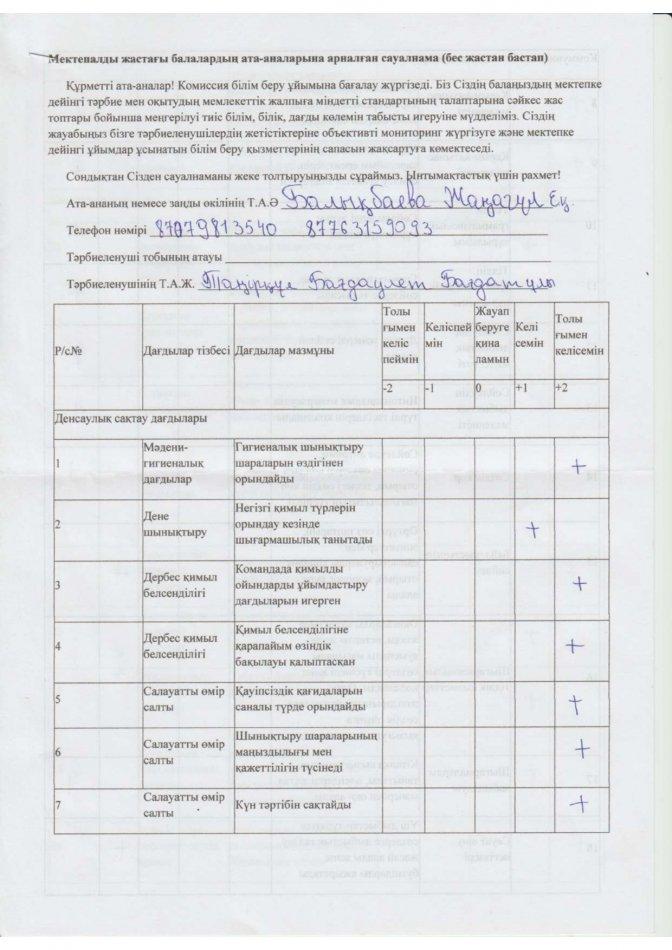 Мектепалды жастағы балалардың ата-аналарына арналған сауалнама (бес жастан бастап)
Құрметті ата-аналар! Комиссия білім беру ұйымына бағалау жүргізеді. Біз Сіздің балаңыздың мектепке
дейінгі тәрбие мен оқытудың мемлекеттік жалпыға міндетті стандартының талаптарына сәйкес жас
топтары бойынша меңгерілуі тиіс білім, білік, дағды көлемін табысты игеруіне мүдделіміз. Сіздің
жауабыңыз бізге тәрбиеленушілердің жетістіктеріне объективті мониторинг жүргізуге және мектепке
дейінгі ұйымдар ұсынатын білім беру қызметтерінің сапасын жақсартуға көмектеседі.
Сондықтан Сізден сауалнаманы жеке толтыруыңызды сұраймыз. Ынтымақтастық үшін рахмет!
Ата-ананың немесе заңды өкілінің Т.А.Ә Балықбаева Жаңагүл Ец
Телефон нөмірі 87079813540 87763159093
Тәрбиеленуші тобының атауы
Тәрбиеленушінің Т.А.Ж. Бағдаулет Бағдатұлы
Р/с№ Дағдылар тізбесі Дағдылар мазмұны
Толы
ғымен
келіс
пеймін
-2
Келіспей
мін
-1
Жауап
беруге
қина
ламын
0
Келі
семін
+1
Толы
ғымен
келісемін
+2
Денсаулық сақтау дағдылары
1
Мәдени-
гигиеналық
дағдылар
Гигиеналық шынықтыру
шараларын өздігінен
орындайды
+
2
Дене
шынықтыру
Негізгі қимыл түрлерін
орындау кезінде
шығармашылық танытады
+
3
Дербес қимыл
белсенділігі
Командада қимылды
ойындарды ұйымдастыру
дағдыларын игерген
+
4
Дербес қимыл
белсенділігі
Қимыл белсенділігіне
қарапайым өзіндік
бақылауы қалыптасқан
+
5
Салауатты өмір
салты
Қауіпсіздік қағидаларын
саналы түрде орындайды
+
6
Салауатты өмір
салты
Шынықтыру шараларының
маңыздылығы мен
қажеттілігін түсінеді
+
7
Салауатты өмір
салты
Күн тәртібін сақтайды
+